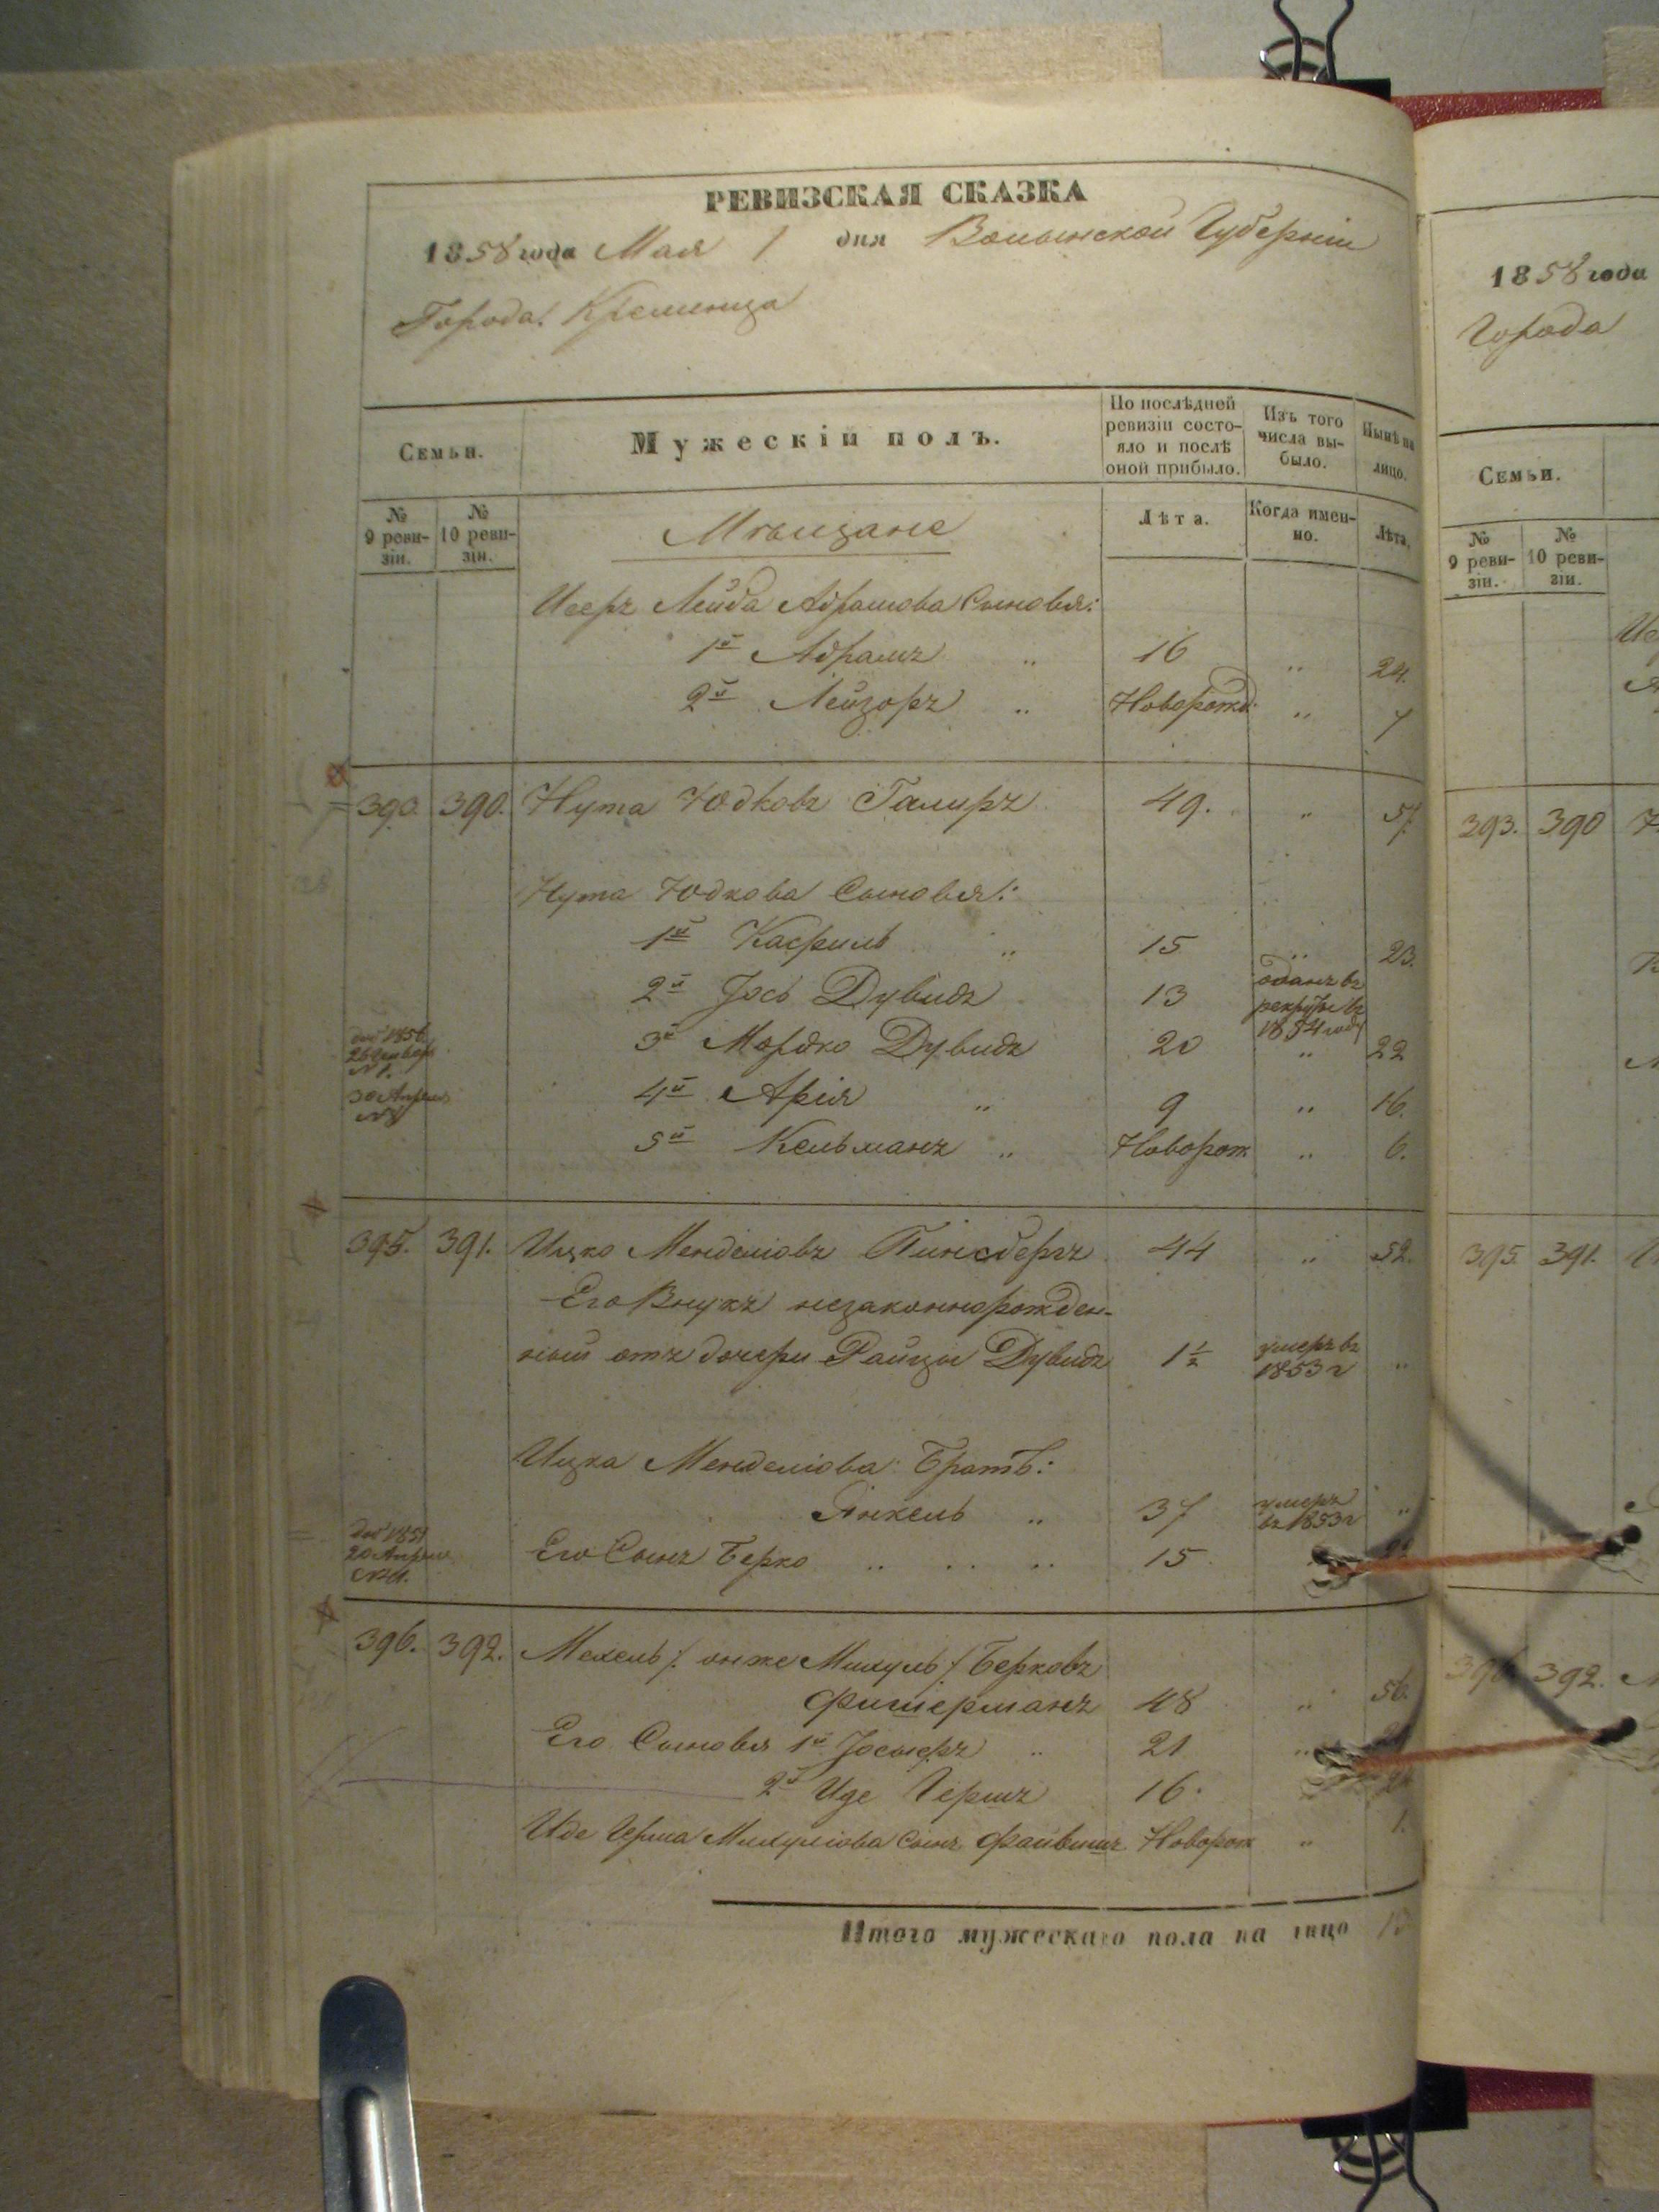 РЕВИЗСКАЯ СКАЗКА
1858 года Мая 1 дня Волынской Губерніи
Города Кременца
Семьи.
Мужескій полъ.
По послѣдней ревизіи состо-
яло и послѣ оной прибыло.
Изъ того числа вы-
было.
Нынѣ на лицо.
№ 9 реви-
зіи.
№ 10 реви-
зіи.
Мѣщане
Лѣта.
Когда имен-
но.
Лѣта.
Лейба Абрамова Сыновья:
1й Абрамъ „ 16 „ 24.
2й Лейзоръ „ Новорожд. „ 7
390. Нута Юдковъ 49. „ 57.
Нута Юдкова Сыновья:
1й Касриль „ 15 „ 23.
2й Іось Дувидъ 13 отданъ въ рекруты въ 1854 году
3й Мордко Дувидъ 20 „ 22
4й Арія „ 9 „ 16.
5й Кельманъ „ Новорож „ 6.
395. 391. Ицко Менделіовъ Гинсбергъ 44 „ 52.
Его Внукъ незаконнорожден-
ный отъ дочери Райцы Дувидъ 1½ умеръ въ 1853 г „
Ицка Менделіова Братъ:
Янкель „ 37 умеръ въ 1853 г „
Его Сынъ Берко „ „ „ 15
396. 392. Мехель /: онже Михуль :/ Берковъ
Фишерманъ 48 „ 56.
Его Сыновья 1й „ 21 „
2й Иде Гершъ 16.
Иде Герша Михуліова Сынъ Файвишъ Новорож „ 1.
Итого мужескаго пола на лицо
1858 года
Города
Семьи.
№ 9 реви-
зіи.
№ 10 реви-
зіи.
393. 390
395. 391.
396. 392.